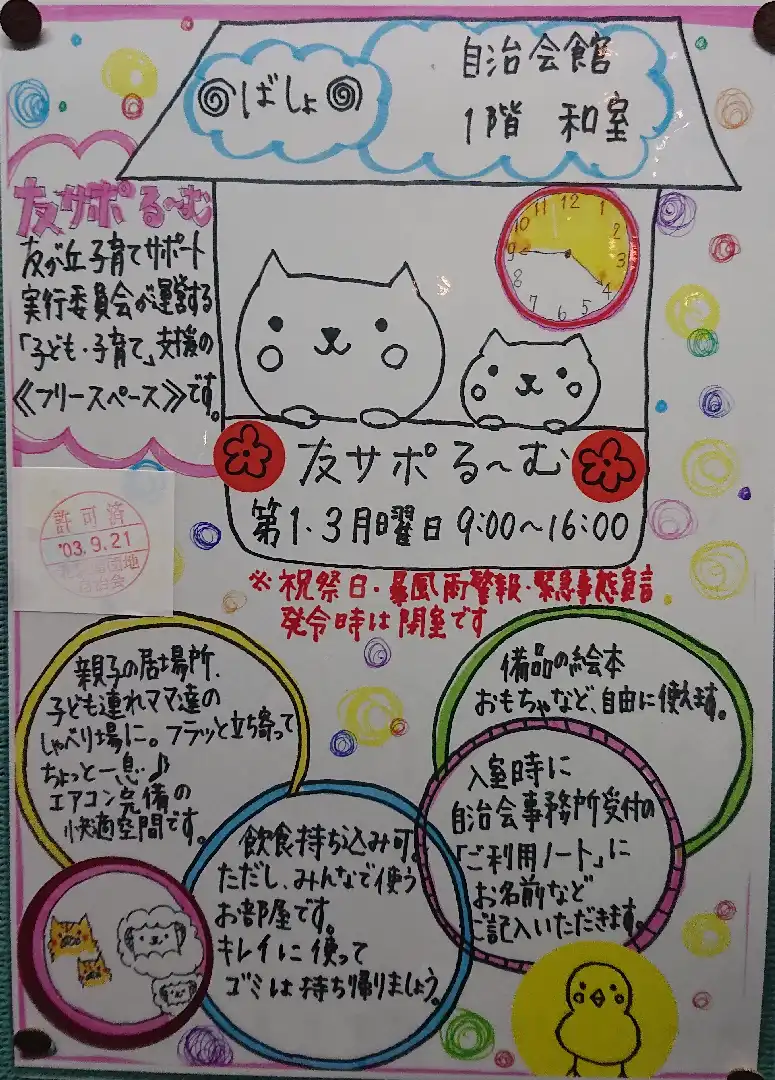 ばしょ
自治会館
1階 和室
友サポる〜む
友が丘子育てサポート
実行委員会が運営する
「子ども・子育て」支援の
《フリースペース》です。
11 12 1
10 2
9 3
8 4
7 6 5
友サポる〜む
第1.3月曜日 9:00〜16:00
※祝祭日・暴風雨警報・緊急事態宣言
発令時は閉室です
許可済
'03.9.21
団地
自治会
親子の居場所、
子ども連れママ達の
しゃべり場に。フラッと立ち寄って
ちょっと一息♪
エアコン完備の
快適空間です。
備品の絵本
おもちゃなど、自由に使えます。
入室時に
自治会事務所受付の
「ご利用ノート」に
お名前など
ご記入いただきます。
飲食持ち込み可。
ただし、みんなで使う
お部屋です。
キレイに使って
ゴミは持ち帰りましょう。